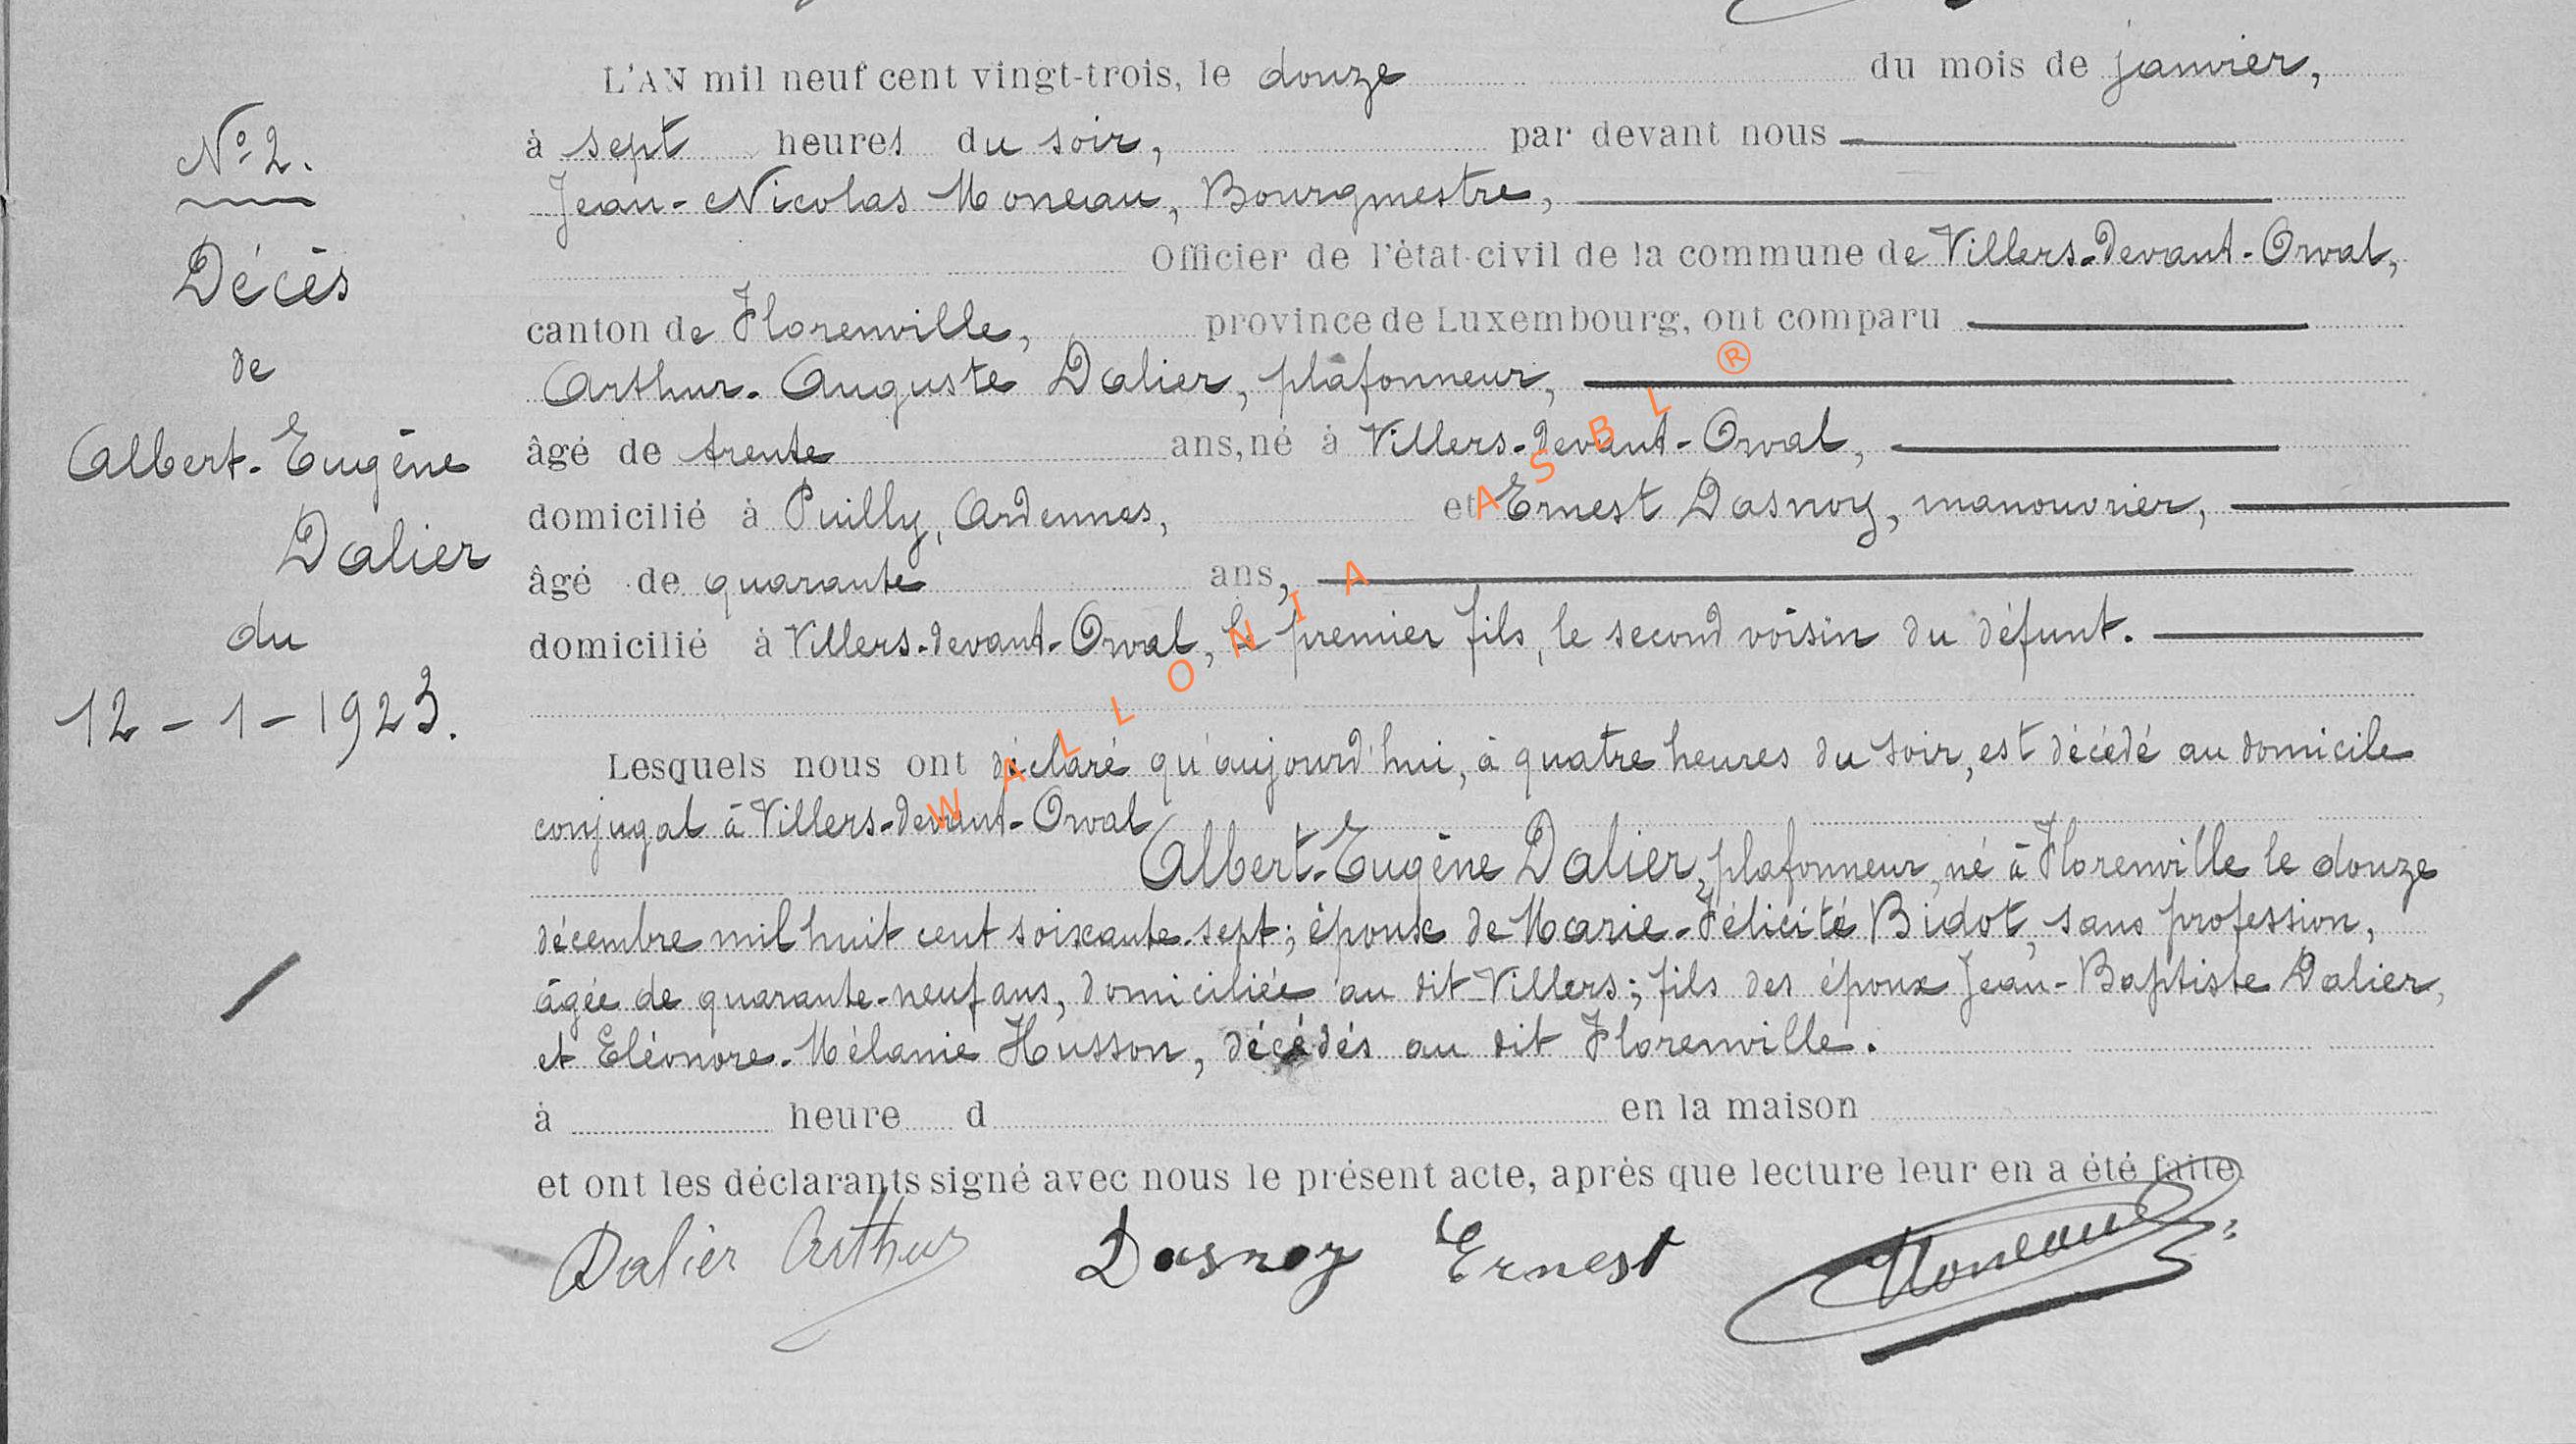 N° 2.
Décès
de
Albert-Eugène
Dalier
du
12 - 1 - 1923.
L'AN mil neuf cent vingt-trois, le douze du mois de janvier,
à sept heures du soir, par devant nous
Jean-Nicolas Moneau, Bourgmestre,
Officier de l'état-civil de la commune de Villers-devant-Orval,
canton de Florenville, province de Luxembourg, ont comparu
Arthur-Auguste Dalier, plafonneur,
âgé de trente ans, né à Villers-devant-Orval,
domicilié à Puilly, Ardennes, et Ernest Dasnoy, manouvrier,
âgé de quarante ans,
domicilié à Villers-devant-Orval, le premier fils, le second voisin du défunt.
Lesquels nous ont déclaré qu'aujourd'hui, à quatre heures du soir, est décédé au domicile
conjugal à Villers-devant-Orval
Albert-Eugène Dalier, plafonneur, né à Florenville le douze
décembre mil huit cent soixante-sept; époux de Marie-Félicité Bidot, sans profession,
âgée de quarante-neuf ans, domiciliée au dit Villers; fils des époux Jean-Baptiste Dalier,
et Eléonore-Mélanie Husson, décédés au dit Florenville.
à heure d en la maison
et ont les déclarants signé avec nous le présent acte, après que lecture leur en a été faite.
Dalier Arthur Dasnoy Ernest Moneau
WALLONIA ASBL ®